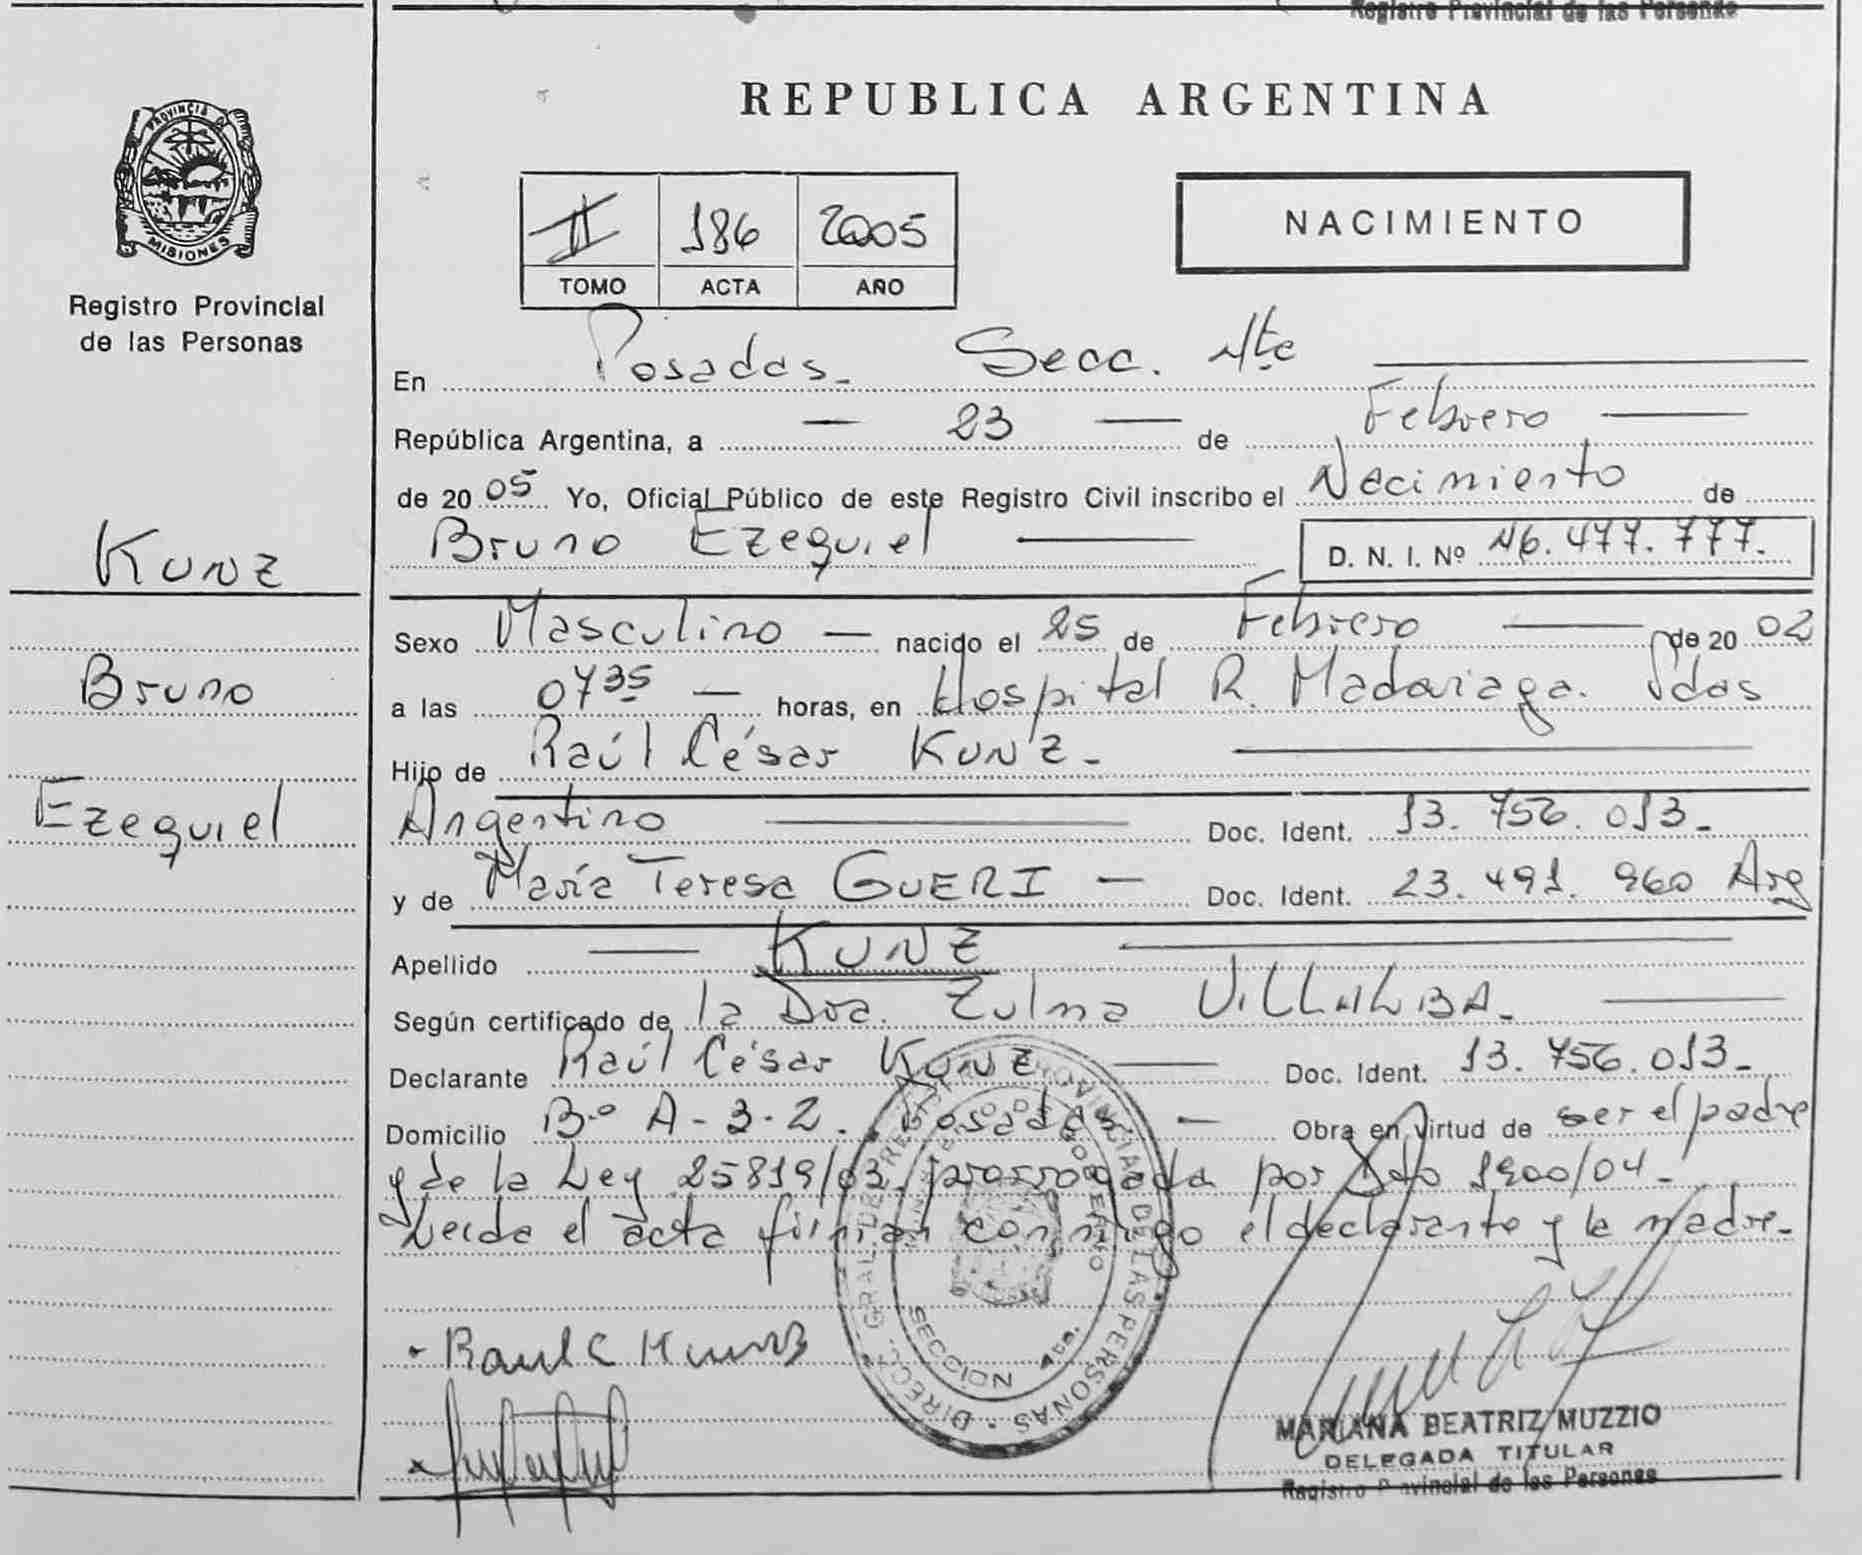 Registro Provincial de las Personas
REPUBLICA ARGENTINA
PROVINCIA DE
MISIONES
Registro Provincial
de las Personas
II 186 2005
TOMO ACTA AÑO
NACIMIENTO
En Posadas. Secc. 4ta
República Argentina, a 23 de Febrero
de 2005 Yo, Oficial Público de este Registro Civil inscribo el Nacimiento de
Bruno Ezequiel D. N. I. Nº 46.477.777.
KUNZ
Bruno
Ezequiel
Sexo Masculino nacido el 25 de Febrero de 2002
a las 0735 horas, en Hospital R. Madariaga. Pdas
Hijo de Raúl César KUNZ.
Argentino Doc. Ident. 13.756.013.
y de María Teresa GUERI Doc. Ident. 23.491.960 Arg
Apellido KUNZ
Según certificado de la Dra. Zulma VILLALBA.
Declarante Raúl César KUNZ Doc. Ident. 13.756.013.
Domicilio Bº A-3-2. Posadas Obra en virtud de ser el padre
y de la Ley 25819/03 prorrogada por Dto 1900/04.
Leida el acta firman conmigo el declarante y la madre.
DIRECC. GRAL. DEL REGISTRO PROVINCIAL DE LAS PERSONAS
SECCION 4ta.
Raul C Kunz
MARIANA BEATRIZ MUZZIO
DELEGADA TITULAR
Registro Provincial de las Personas